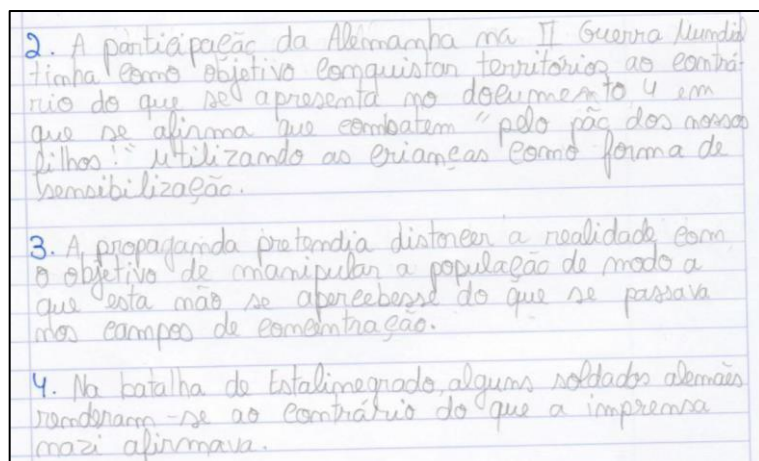 2. A participação da Alemanha na II Guerra Mundial
tinha como objetivo conquistar territórios ao contrá-
rio do que se apresenta no documento 4 em
que se afirma que combatem "pelo pão dos nossos
filhos!" utilizando as crianças como forma de
sensibilização.
3. A propaganda pretendia distorcer a realidade com
o objetivo de manipular a população de modo a
que esta não se apercebesse do que se passava
nos campos de concentração.
4. Na batalha de Estalinegrado, alguns soldados alemães
renderam-se ao contrário do que a imprensa
nazi afirmava.